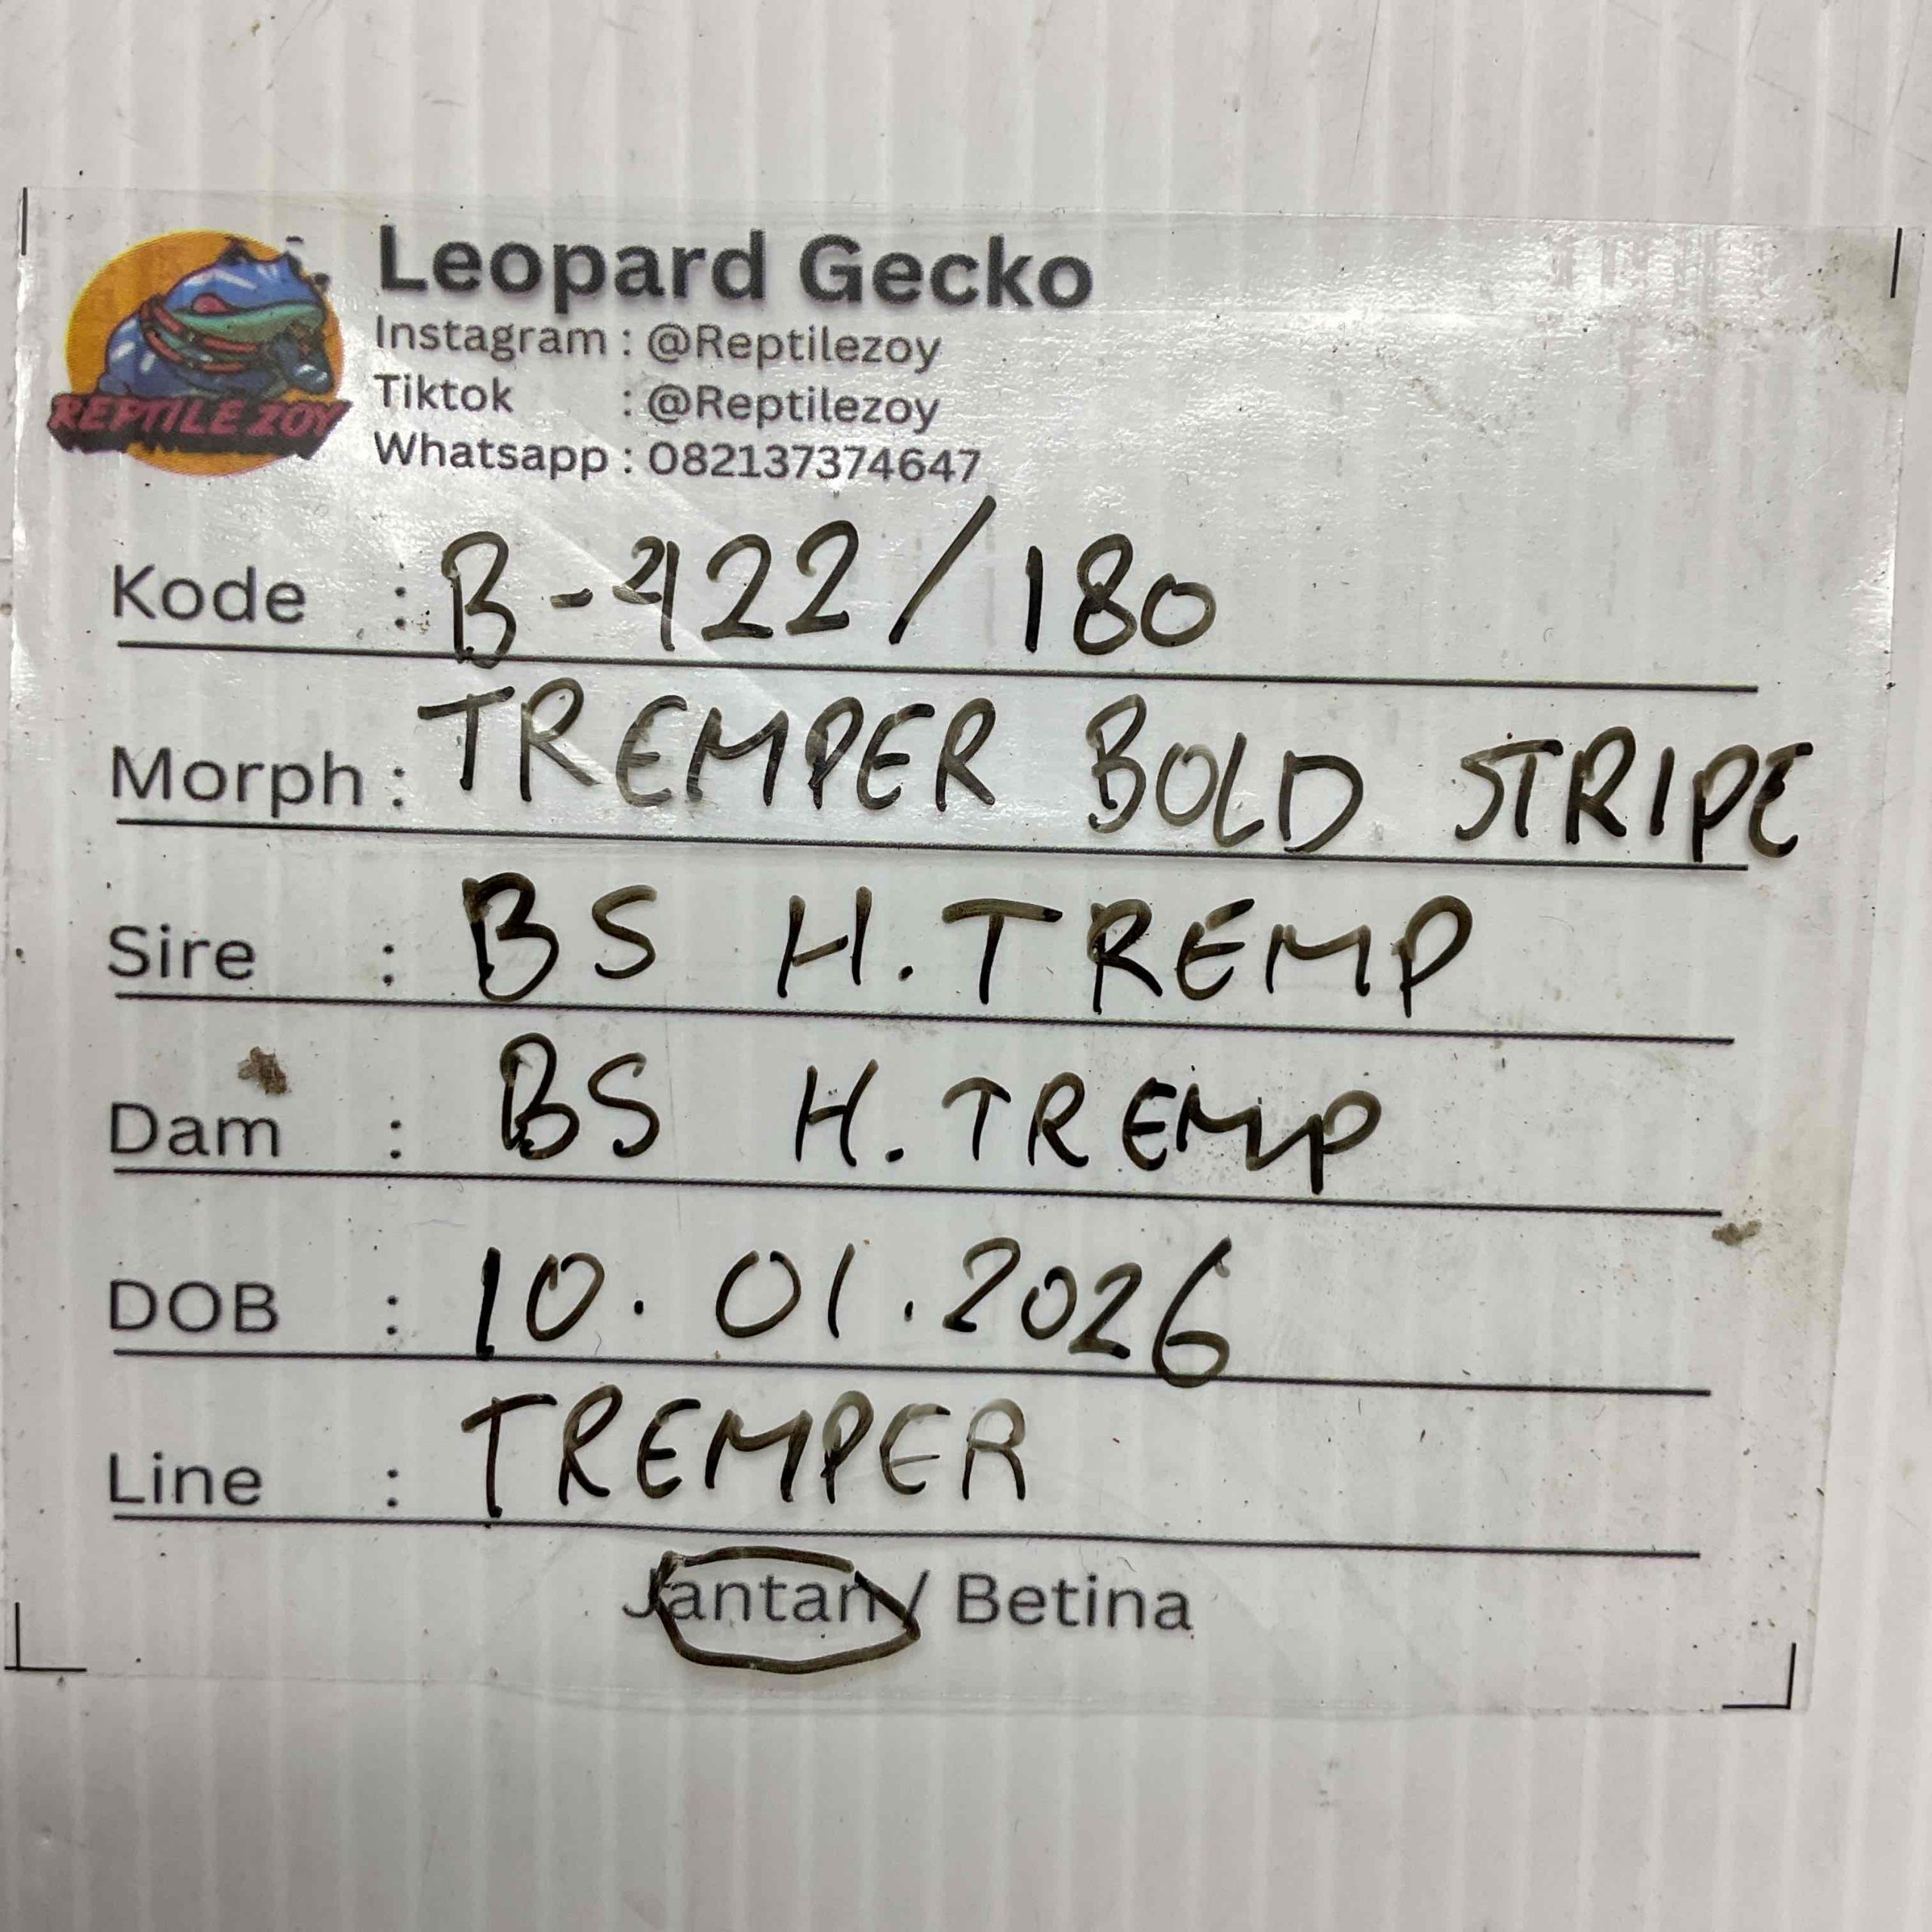 Leopard Gecko
Instagram : @Reptilezoy
Tiktok : @Reptilezoy
Whatsapp : 082137374647
REPTILE ZOY
Kode : B-422/180
Morph : TREMPER BOLD STRIPE
Sire : BS H.TREMP
Dam : BS H.TREMP
DOB : 10.01.2026
Line : TREMPER
Jantan / Betina